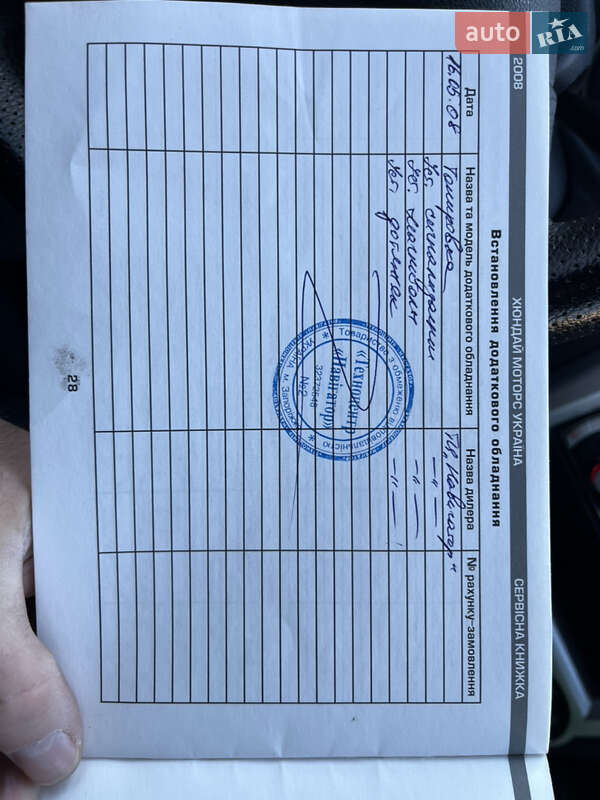 auto RIA.com
2008 ХЮНДАЙ МОТОРС УКРАЇНА СЕРВІСНА КНИЖКА
Встановлення додаткового обладнання
Дата Назва та модель додаткового обладнання Назва дилера № рахунку-замовлення
16.05.08 Тонировка ТЦ „Навігатор"
Уст. сигнализации —"—
Уст. —"—
Уст. —"—
Товариство з обмеженою відповідальністю
УКРАЇНА м. Запоріжжя
«Техноцентр
«Навігатор»
32372648
№2
28